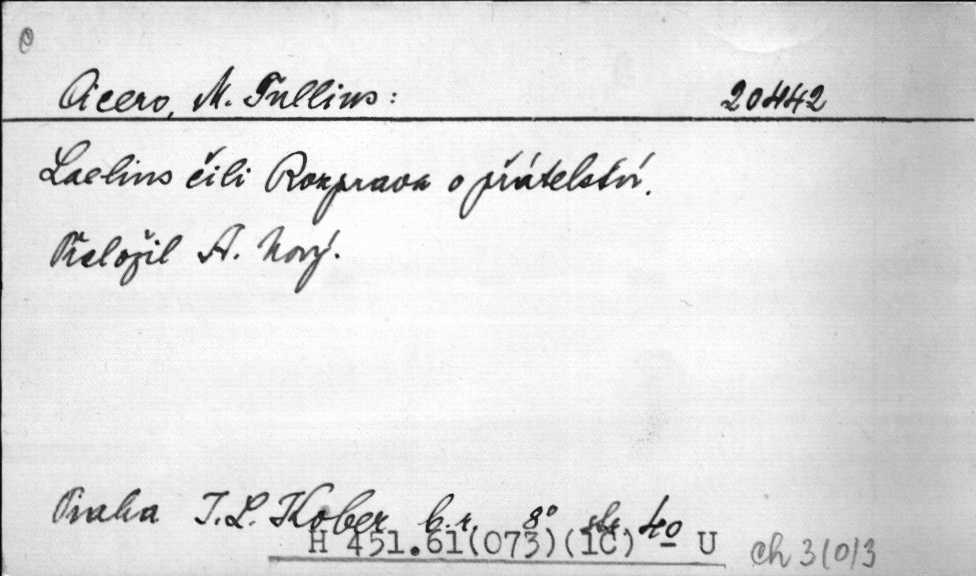 C
Cicero, M. Tullius: 20442
Laelius čili Rozprava o přátelství.
Přeložil A. Nový.
Praha I.L. Kober b.r. 8° str. 40
H 451.61(073)(1C) U ch 3/0/3